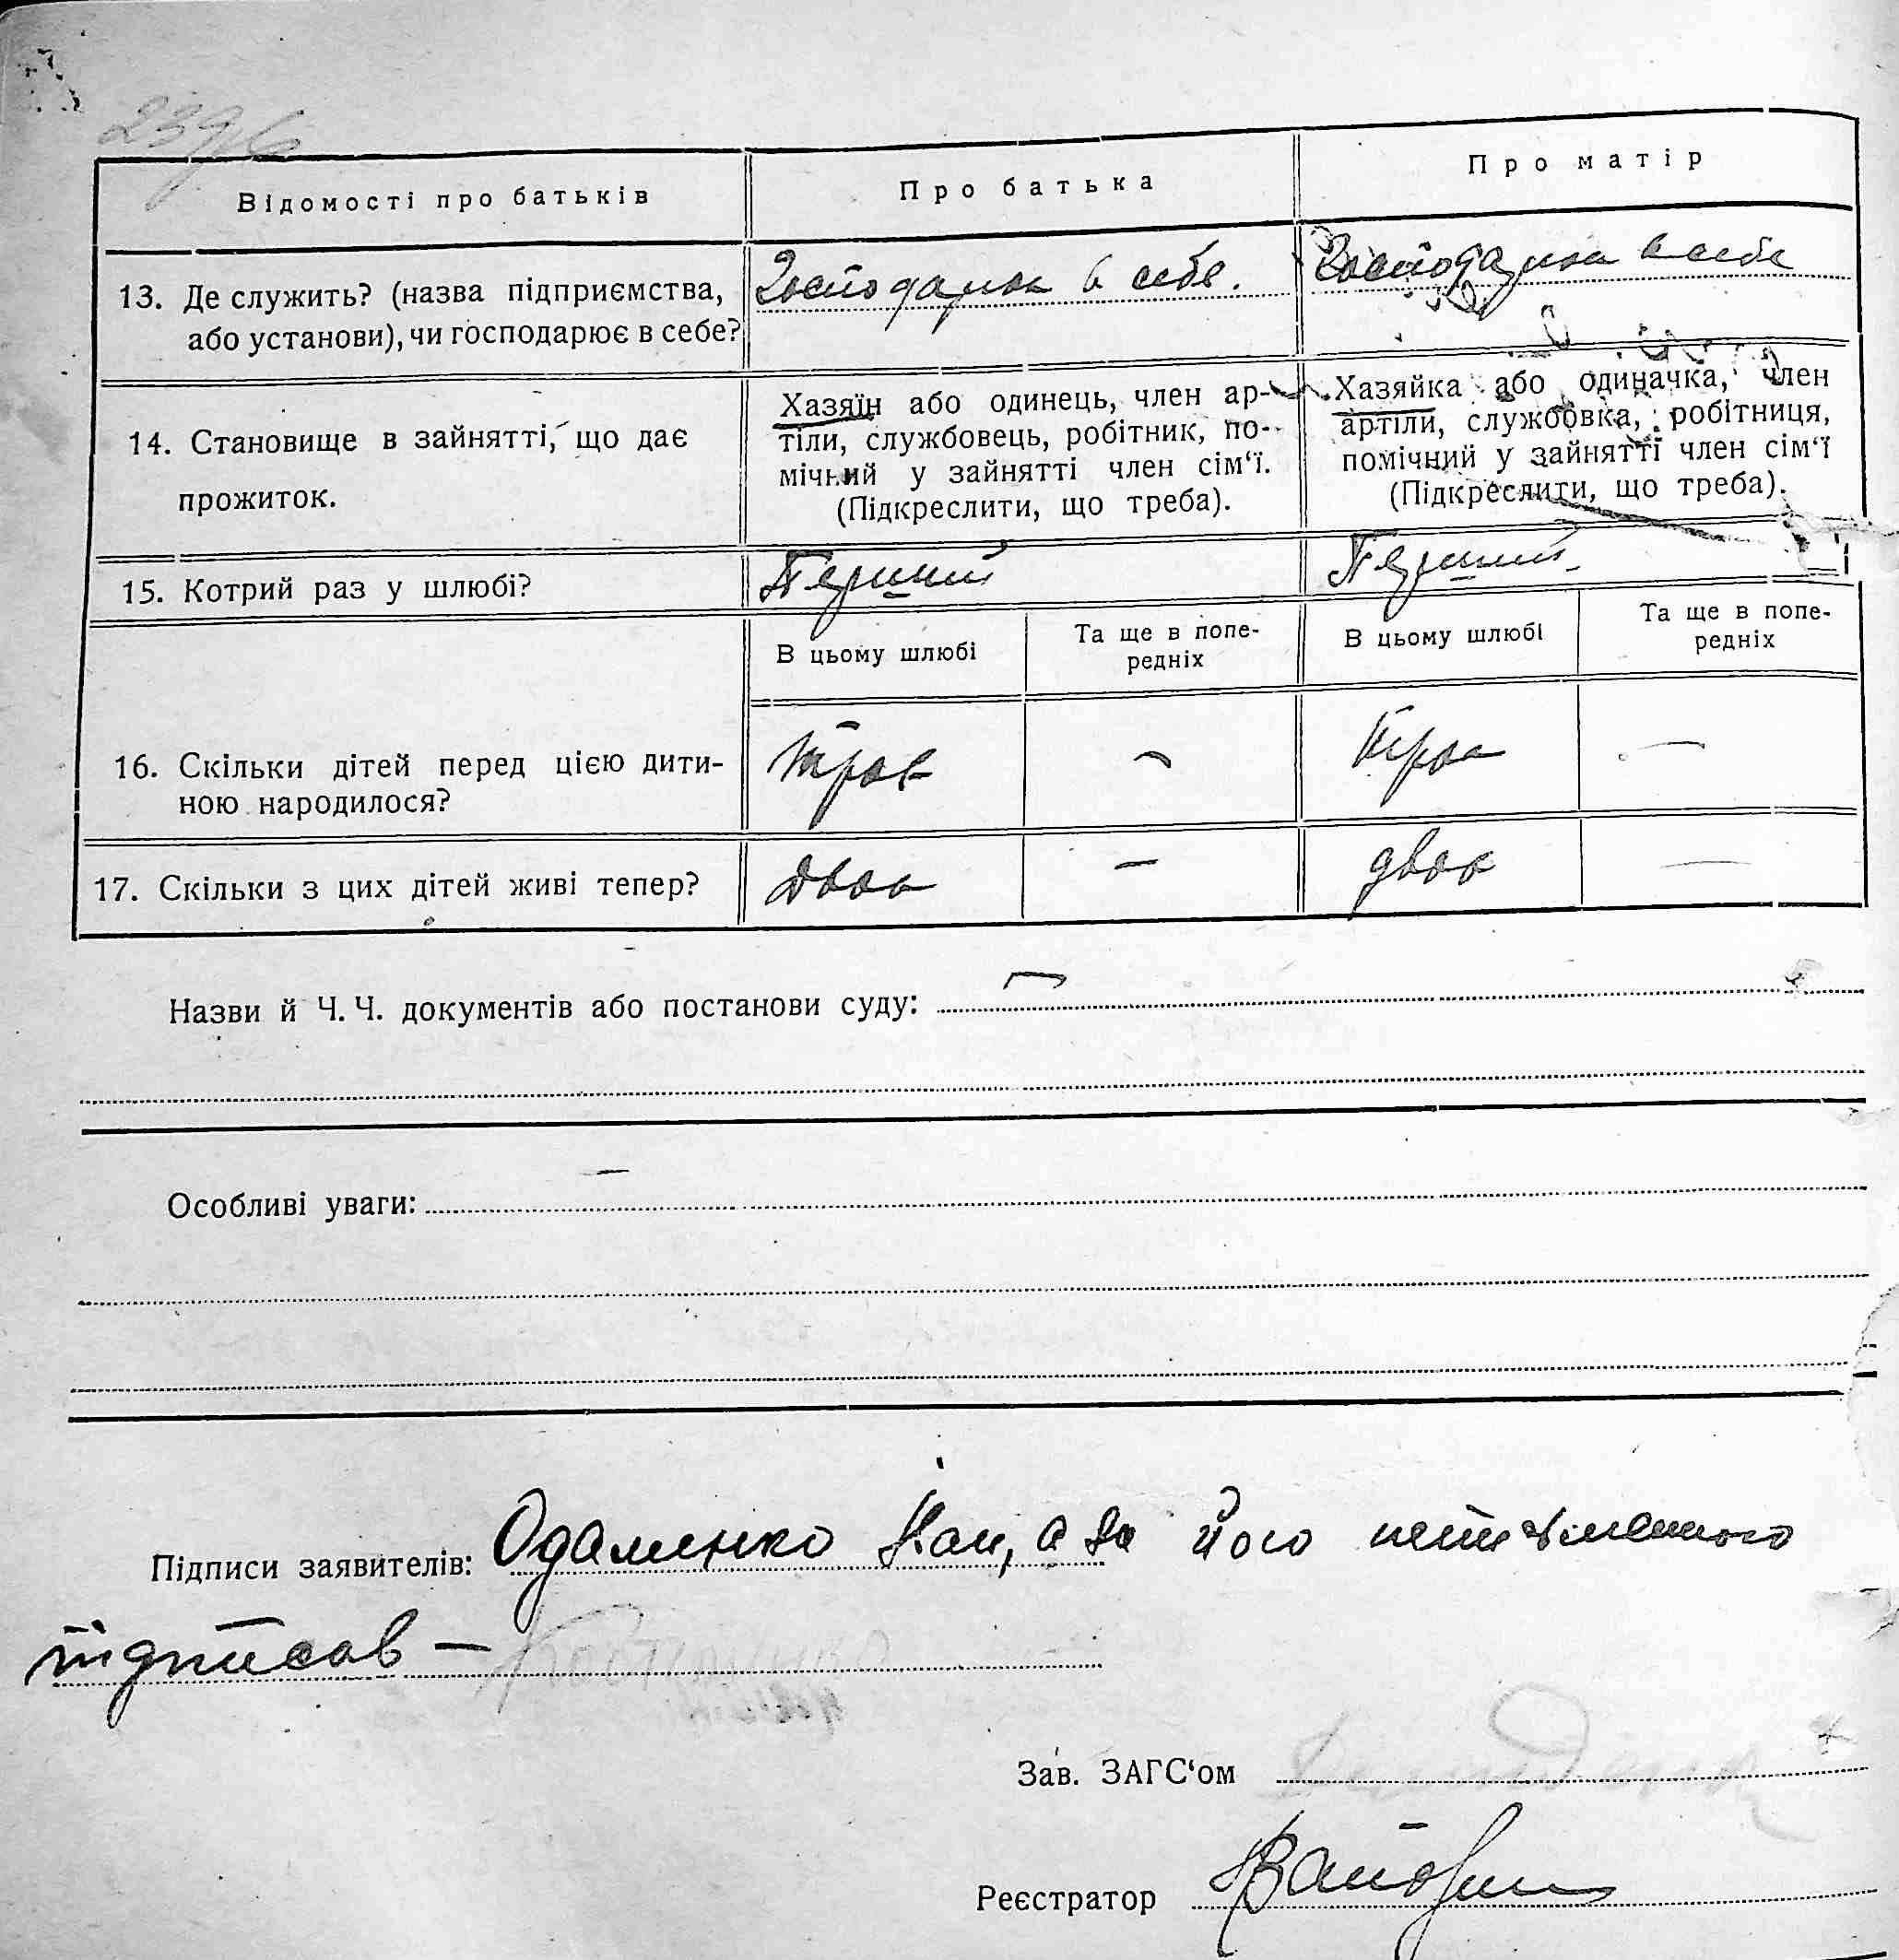 Відомості про батьків
Про батька
Про матір
13. Де служить? (назва підприємства,
або установи), чи господарює в себе?
Господарює в себе.
Господарює в себе
14. Становище в зайнятті, що дає
прожиток.
Хазяїн або одинець, член ар-
тіли, службовець, робітник, по-
мічний у зайнятті член сім‘ї.
(Підкреслити, що треба).
Хазяйка або одиначка, член
артіли, службовка, робітниця,
помічний у зайнятті член сім‘ї
(Підкреслити, що треба).
15. Котрий раз у шлюбі?
Перший
Перший
В цьому шлюбі
Та ще в попе-
редніх
В цьому шлюбі
Та ще в попе-
редніх
16. Скільки дітей перед цією дити-
ною народилося?
троє
–
троє
–
17. Скільки з цих дітей живі тепер?
двоє
–
двоє
–
Назви й Ч. Ч. документів або постанови суду: –
Особливі уваги: –
Підписи заявителів: Одаменко Іван, а за його неписьменного
підписав –
Зав. ЗАГС‘ом
Реєстратор